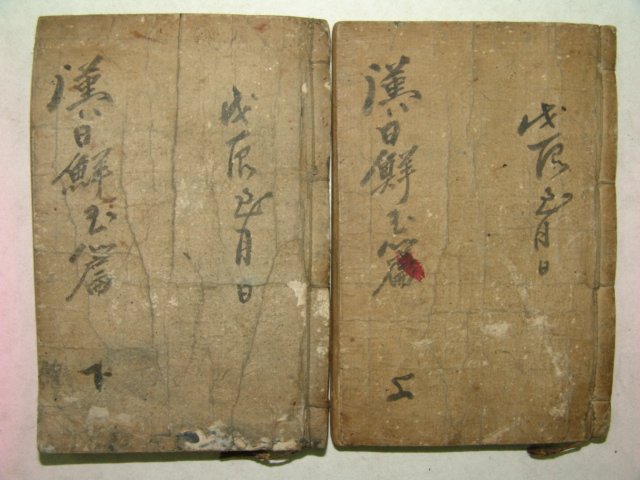 戊辰正月日
漢日鮮玉篇
上
戊辰正月日
漢日鮮玉篇
下